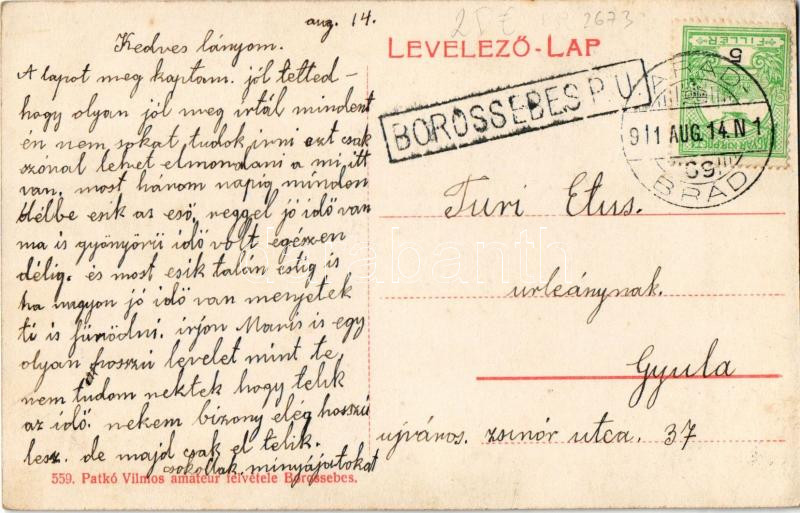 aug. 14.
25 € 2673
Kedves lányom.
A lapot meg kaptam. jól tetted –
hogy olyan jól meg irtál mindent
én nem sokat tudok irni ezt csak
szónal lehet elmondani a mi itt
van. most három napig minden
délbe esik az eső, reggel jó idő van
ma is gyönyörü idő volt egészen
délig. és most esik talán estig is
ha nagyon jó idő van menjetek
ti is fürödni. irjon Maris is egy
olyan hosszú levelet mint te
nem tudom nektek hogy telik
az idő. nekem bizony elég hosszú
lesz. de majd csak el telik.
csokollak minyájotokat
559. Patkó Vilmos amateur felvétele Borossebes.
LEVELEZŐ-LAP
BOROSSEBES P. U.
ARAD-
911 AUG. 14. N 1
69
BRÁD
MAGYAR KIR. POSTA
5
FILLÉR
Turi Etus.
urleánynak.
Gyula
ujváros. zsinór utca. 37